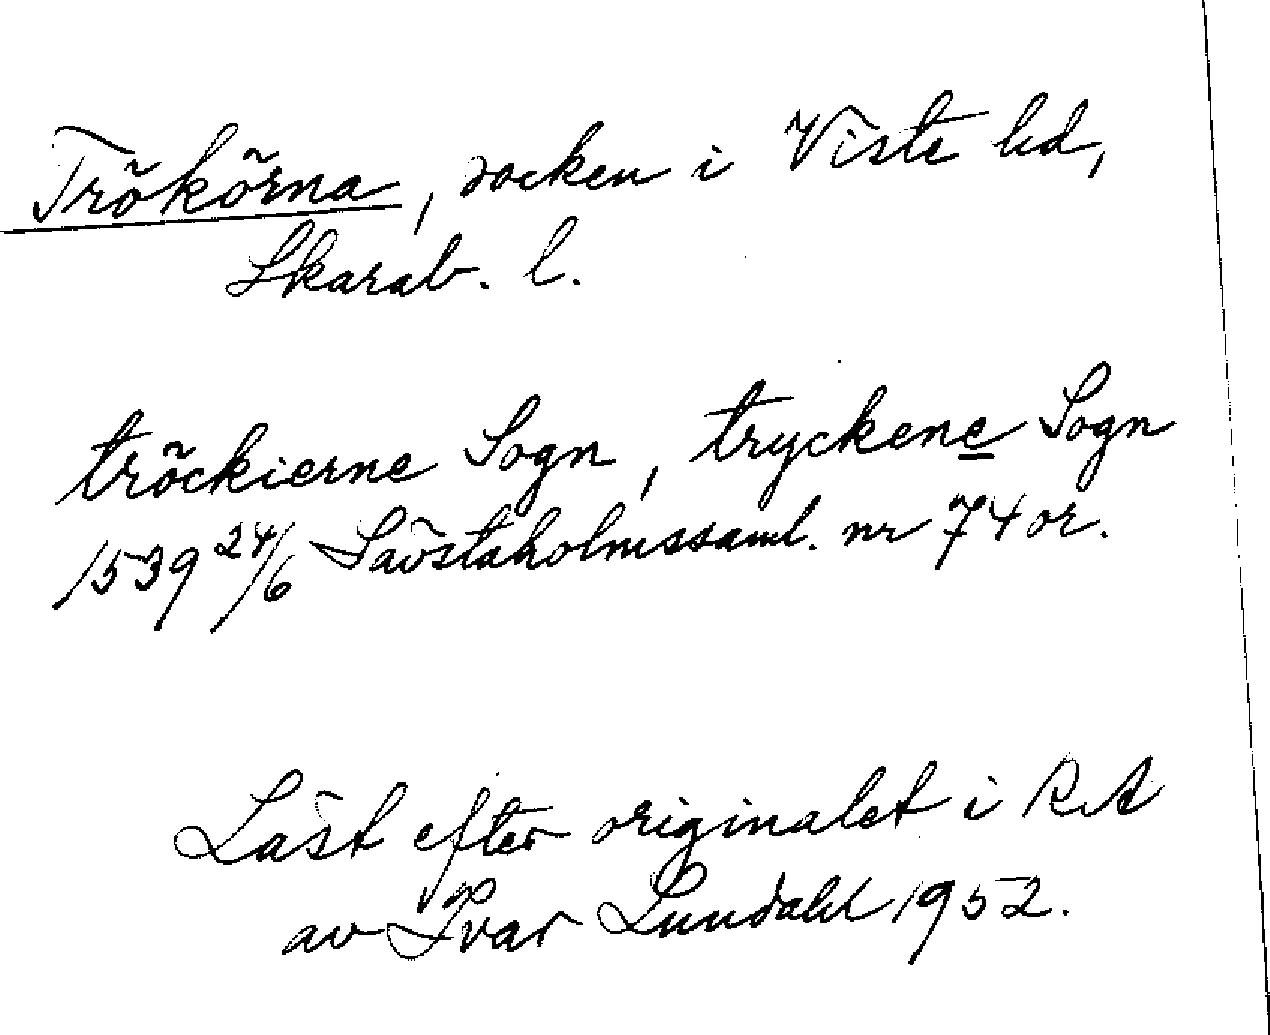 Trökörna, socken i Viste hd,
Skarab. l.
tröckierne Sogn, tryckene Sogn
1539 24/6 Sävstaholmssaml. nr 74 or.
Läst efter originalet i RA
av Ivar Lundahl 1952.